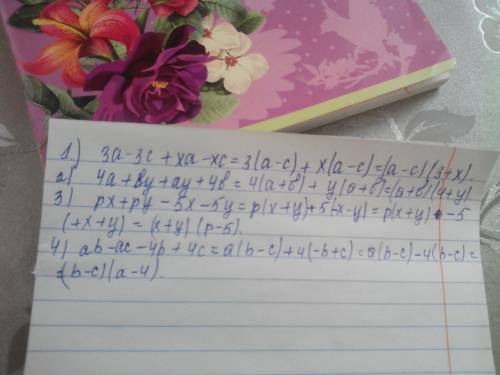 1.) 3a-3c+xa-xc=3(a-c)+x(a-c)=(a-c)(3+x).
2) 4a+by+ay+4b=4(a+b)+y(a+b)=(a+b)(4+y)
3) px+py-5x-5y=p(x+y)+5(-x-y)=p(x+y)-5
(+x+y)=(x+y)(p-5).
4) ab-ac-4b+4c=a(b-c)+4(-b+c)=a(b-c)-4(b-c)=
=(b-c)(a-4).